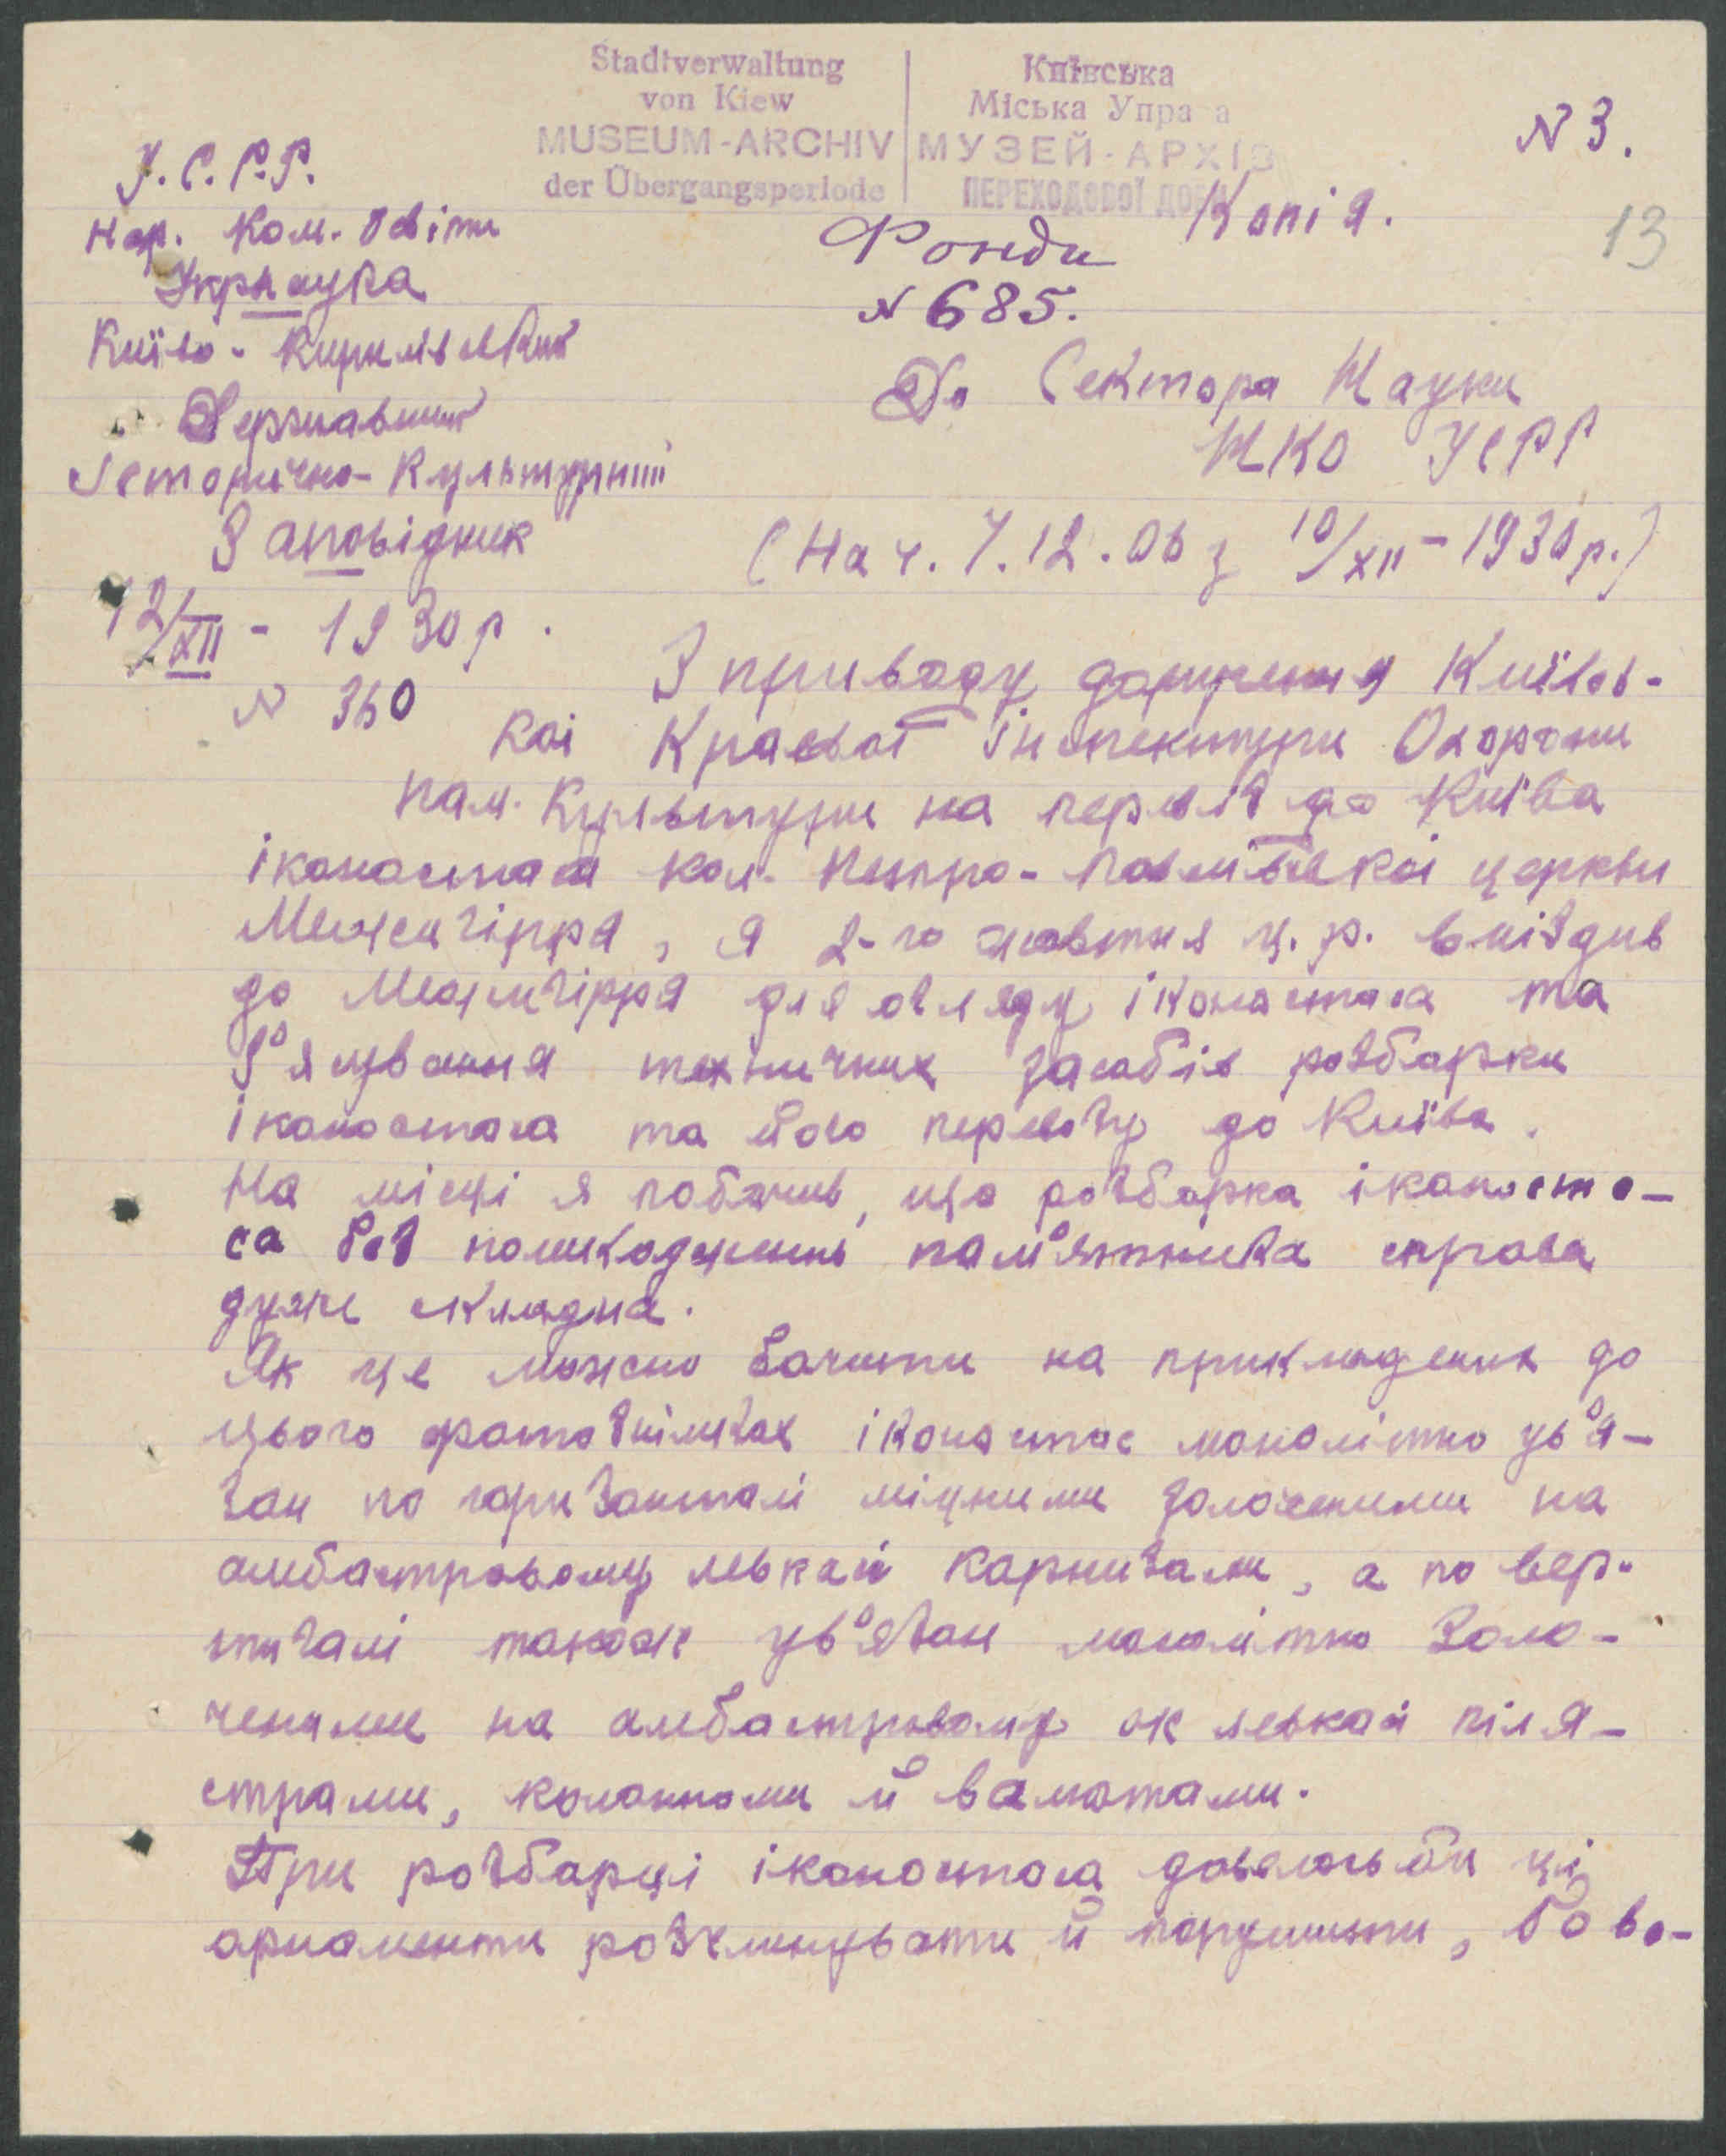 Stadtverwaltung
von Kiew
MUSEUM-ARCHIV
der Übergangsperiode
Київська
Міська Управа
МУЗЕЙ-АРХІВ
ПЕРЕХОДОВОЇ ДОБИ
N 3.
13
Копія.
Фонди
N 685.
У.С.Р.Р.
Нар. Ком. Освіти
Укрнаука
Київо-Кирилівський
Державний
Історично-Культурний
Заповідник
12/XII - 1930 р.
N 360
До Сектора Науки
НКО УСРР
(На ч. 7.12.06 з 10/XII-1930 р.)
З приводу доручення Київсь-
коі Краевоі Інспектури Охорони
пам. Культури на перевіз до Київа
іконостаса кол. Петро-Павлівськоі церкви
Межигірря, я 2-го жовтня ц.р. виіздив
до Межигірря для огляду іконостаса та
з'ясування технічних засобів розборки
іконостаса та його перевозу до Київа.
На місці я побачив, що розборка іконоста-
са без пошкоджень пам'ятника справа
дуже складна.
Як це можно бачити на прикладених до
цього фотознімках іконостас монолітно ув'я-
зан по горизонталі міцними золоченими на
алебастровому левкасі карнизами, а по вер-
тикалі також ув'язан монолітно золо-
ченими на алебастровому левкасі піля-
страми, колонками й валютами.
При розборці іконостаса довелось би ці
орнаменти розчленувати й порушити, бо во-